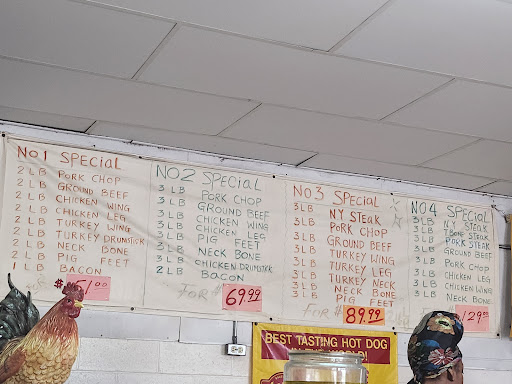 No1 SPECIAL
2 LB PORK CHOP
2 LB GROUND BEEF
2 LB CHICKEN WING
2 LB CHICKEN LEG
2 LB TURKEY WING
2 LB TURKEY DRUMSTICK
2 LB NECK BONE
2 LB PIG FEET
1 LB BACON
51.00
No2 SPECIAL
3 LB PORK CHOP
3 LB GROUND BEEF
3 LB CHICKEN WING
3 LB CHICKEN LEG
3 LB PIG FEET
3 LB NECK BONE
3 LB CHICKEN DRUMSTICK
2 LB BACON
FOR $ 69.99
No 3 SPECIAL
3LB NY STEAK
3LB PORK CHOP
3LB GROUND BEEF
3LB TURKEY WING
3LB TURKEY LEG
3LB NECK BONE
3LB PIG FEET
FOR 89.99
No 4 SPECIAL
NY STEAK
T BONE STEAK
PORK STEAK
GROUND BEEF
PORK CHOP
CHICKEN WING
CHICKEN LEG
NECK BONE
129.00
BEST TASTING HOT DOG